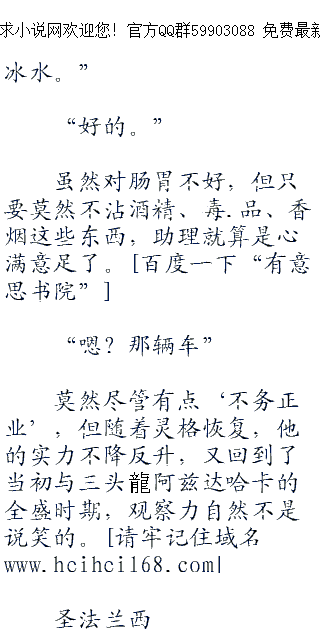 求小说网欢迎您! 官方QQ群59903088 免费最新
冰水。”
“好的。”
虽然对肠胃不好，但只
要莫然不沾酒精、毒.品、香
烟这些东西，助理就算是心
满意足了。[百度一下“有意
思书院”]
“嗯？那辆车”
莫然尽管有点‘不务正
业’，但随着灵格恢复，他
的实力不降反升，又回到了
当初与三头龍阿兹达哈卡的
全盛时期，观察力自然不是
说笑的。[请牢记住域名
www.hcihci168.com|
圣法兰西